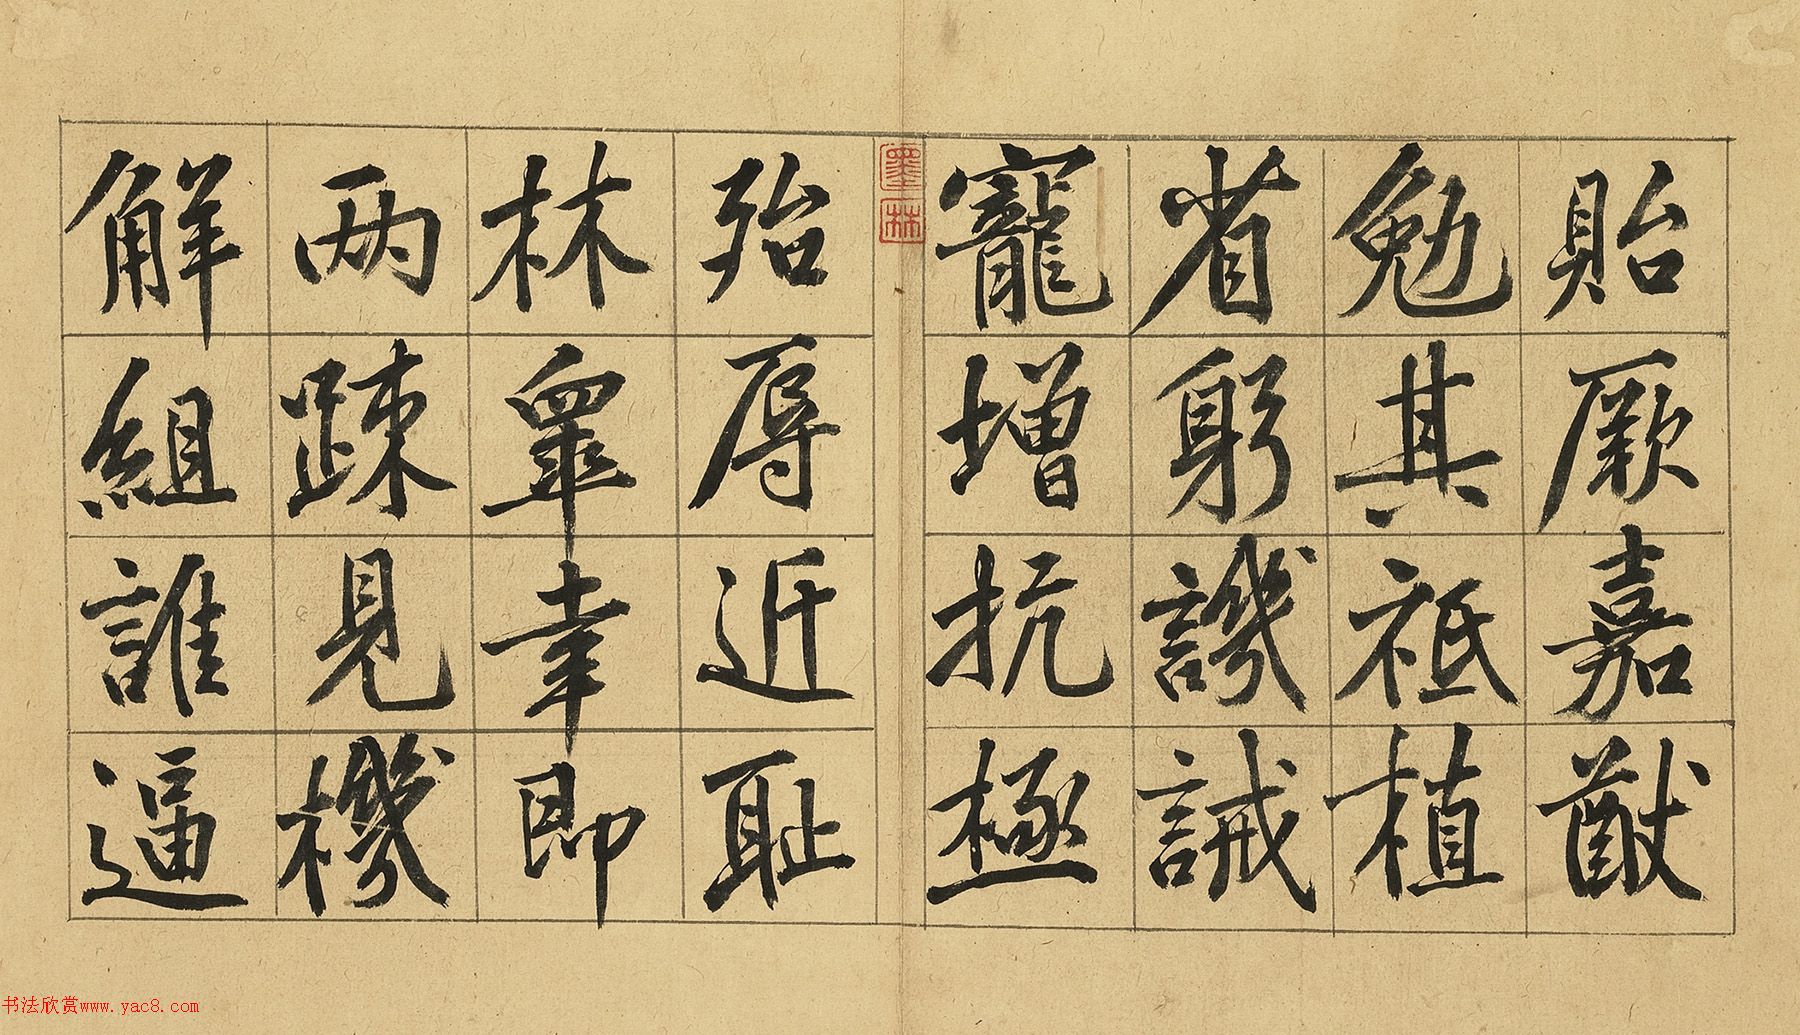 貽厥嘉猷
勉其祗植
省躬譏誡
寵增抗極
殆辱近耻
林睪幸即
兩疎見機
解組誰逼
墨林
书法欣赏www.yac8.com